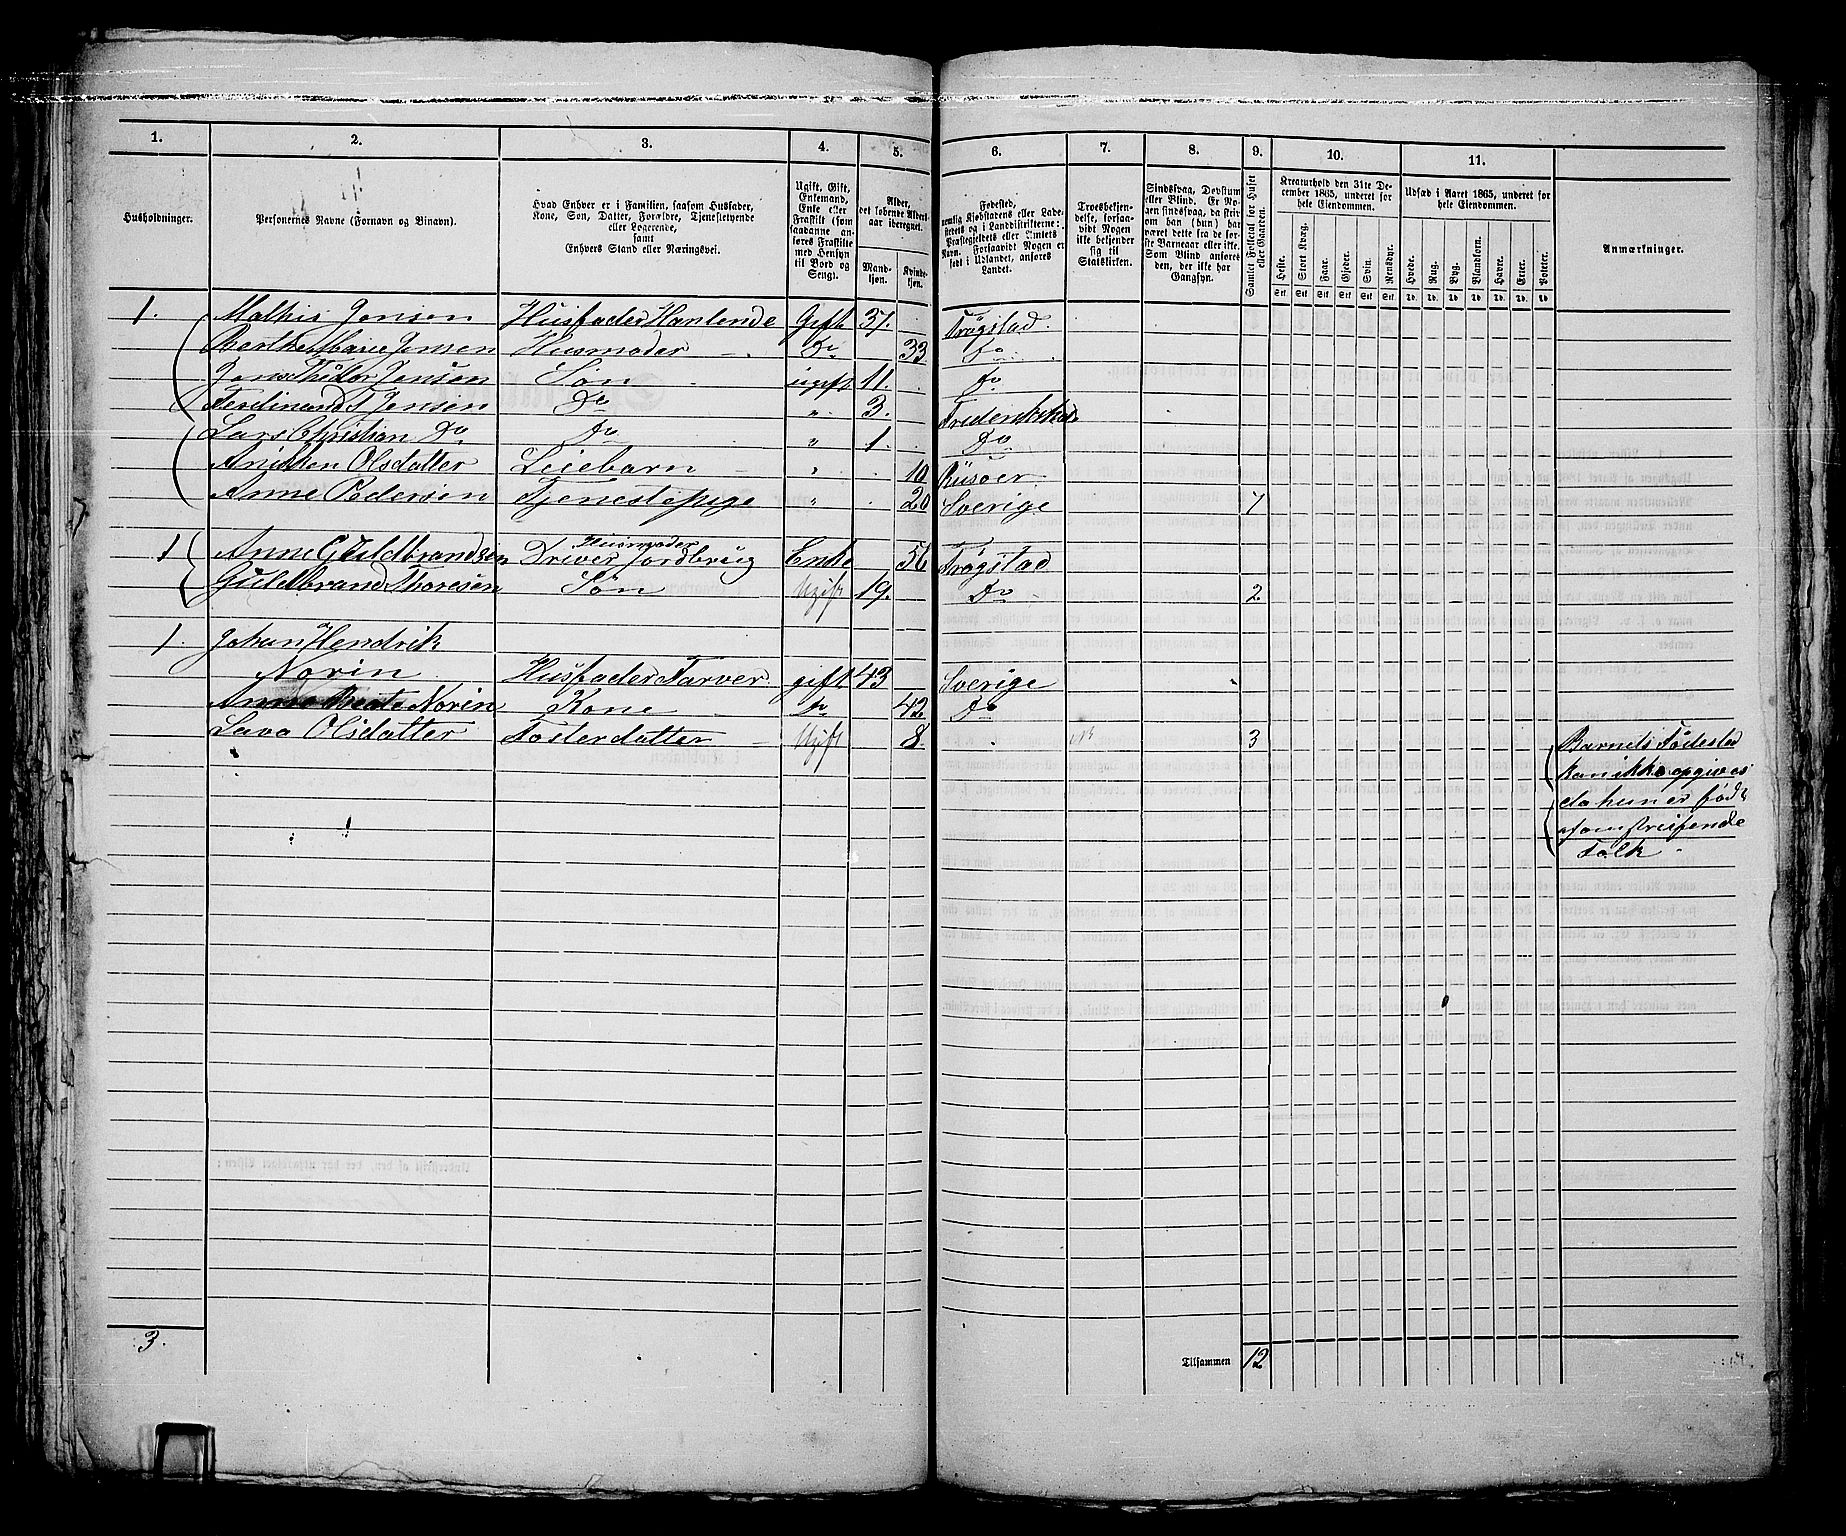 1. 2. 3. 4. 5. 6. 7. 8. 9. 10. 11.
Husholdninger.
Personernes Navne (Fornavn og Binavn).
Hvad Enhver er i Familien, saasom Husfader,
Kone, Søn, Datter, Forældre, Tjenestetyende
eller Logerende,
samt
Enhvers Stand eller Næringsvei.
Ugift, Gift,
Enkemand,
Enke eller
Fraskilt (som
saadanne an-
føres Fraskilte
med Hensyn
til Bord og
Seng).
Alder,
det løbende Alders-
aar iberegnet.
Mand-
kjøn.
Kvinde-
kjøn.
Fødested,
nemlig Kjøbstadens eller Lade-
stedets og i Landdistrikterne:
Præstegjeldets eller Sognets
Navn. Forsaavidt Nogen er
født i Udlandet, anføres
Landet.
Troesbekjen-
delse, forsaa-
vidt Nogen
ikke bekjender
sig til
Statskirken.
Sindssvag, Døvstum
eller Blind. Er No-
gen sindssvag, da skriv
om han (hun) har
været dette fra de før-
ste Barneaar eller ikke.
Som Blind anføres
den, der ikke har
Gangsyn.
Samlet Folketal for Huset
eller Gaarden.
Kreaturhold den 31te De-
cember 1865, underet for
hele Eiendommen.
Heste. Stort Kvæg. Faar. Gjeder. Svin. Rensdyr.
Stk. Stk. Stk. Stk. Stk. Stk.
Udsæd i Aaret 1865, underet for
hele Eiendommen.
Hvede. Rug. Byg. Blandkorn. Havre. Erter. Poteter.
Anmærkninger.
1. Mathis Jensen Husfader Hanlende Gift 37. Trøgstad.
Berthe Marie Jensen Husmoder Do 33 Do
Jens Thedor Jensen Søn ugift 11. Do
Ferdinand T Jensen Do " 3. Frederikstad
Lars Christian Do Do " 1. Do
Anikken Olsdatter Leiebarn " 10 Riisøer
Anne Pedersen Tjenestepige " 20 Sverige 7
Husmoder
1 Anne Guldbrandsen Driver Jordbrug Enke 56 Trøgstad
Guldbrand Thoresen Søn Ugift 19. Do 2
1. Johan Hendrik
Norin Husfader Farver gift 43 Sverige
Anne Beate Norin Kone Do 42 Do
Lava Olsdatter Fosterdatter Ugift 8 3
Barnets Fødested
kan ikke opgives
da hun er født
af omstreifende
Folk
3. Tilsammen 12